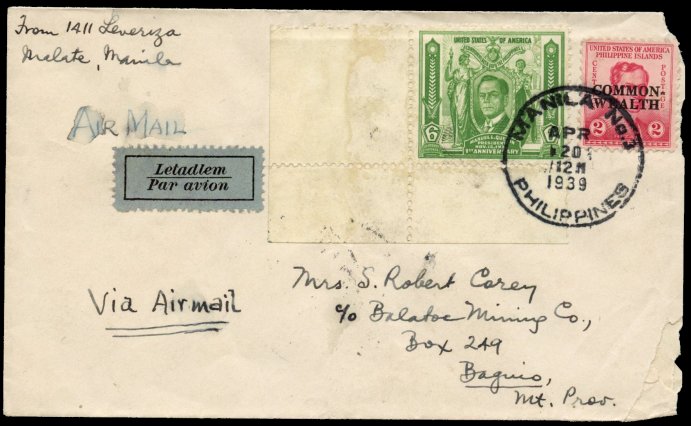 From 1411 Leveriza
Malate, Manila
AIR MAIL
Letadlem
Par avion
UNITED STATES OF AMERICA
6
MANUEL L. QUEZON
PRESIDENT
1ST ANNIVERSARY
UNITED STATES OF AMERICA
PHILIPPINE ISLANDS
CENTAVOS
POSTAGE
COMMON-
WEALTH
2 2
MANILA No. 3
APR
20
12 M
1939
PHILIPPINES
Via Airmail
Mrs. S. Robert Corey
c/o Balatoc Mining Co.,
Box 249
Baguio,
Mt. Prov.